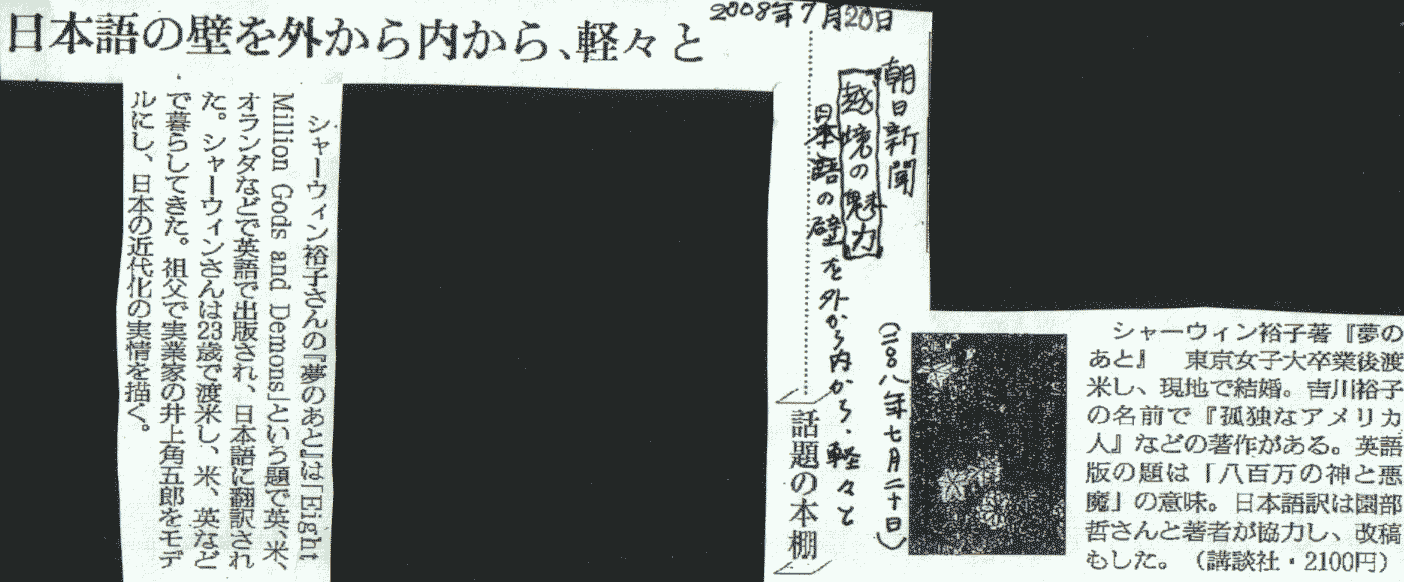 日本語の壁を外から内から、軽々と
2008年7月20日
朝日新聞
越境の魅力
日本語の壁を外から内から、軽々と
(二〇〇八年七月二十日)
話題の本棚
シャーウィン裕子さんの『夢のあと』は「Eight
Million Gods and Demons」という題で英、米、
オランダなどで英語で出版され、日本語に翻訳され
た。シャーウィンさんは23歳で渡米し、米、英など
で暮らしてきた。祖父で実業家の井上角五郎をモデ
ルにし、日本の近代化の実情を描く。
シャーウィン裕子著『夢の
あと』　東京女子大卒業後渡
米し、現地で結婚。吉川裕子
の名前で『孤独なアメリカ
人』などの著作がある。英語
版の題は「八百万の神と悪
魔」の意味。日本語訳は園部
哲さんと著者が協力し、改稿
もした。（講談社・2100円）